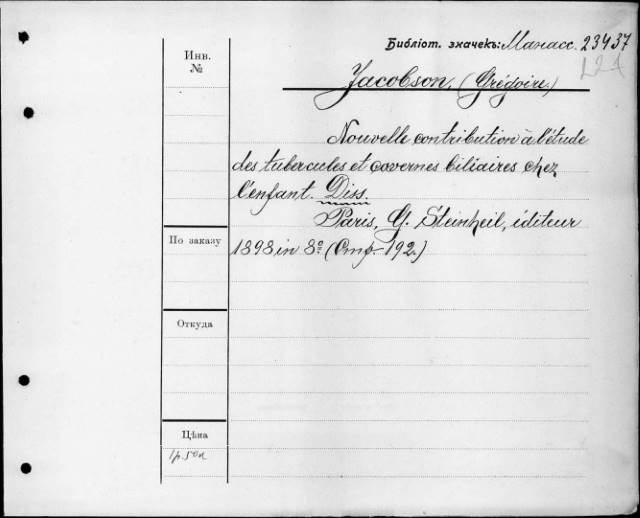 Библіот. значекъ: Манасс. 23437
Инв.
№
Jacobson, (Grégoire.)
Nouvelle contribution à l'étude
des tubercules et cavernes biliaires chez
l'enfant. Diss.
Paris, G. Steinheil, éditeur
По заказу
1898, in 8º (Стр. 192.)
Откуда
Цѣна